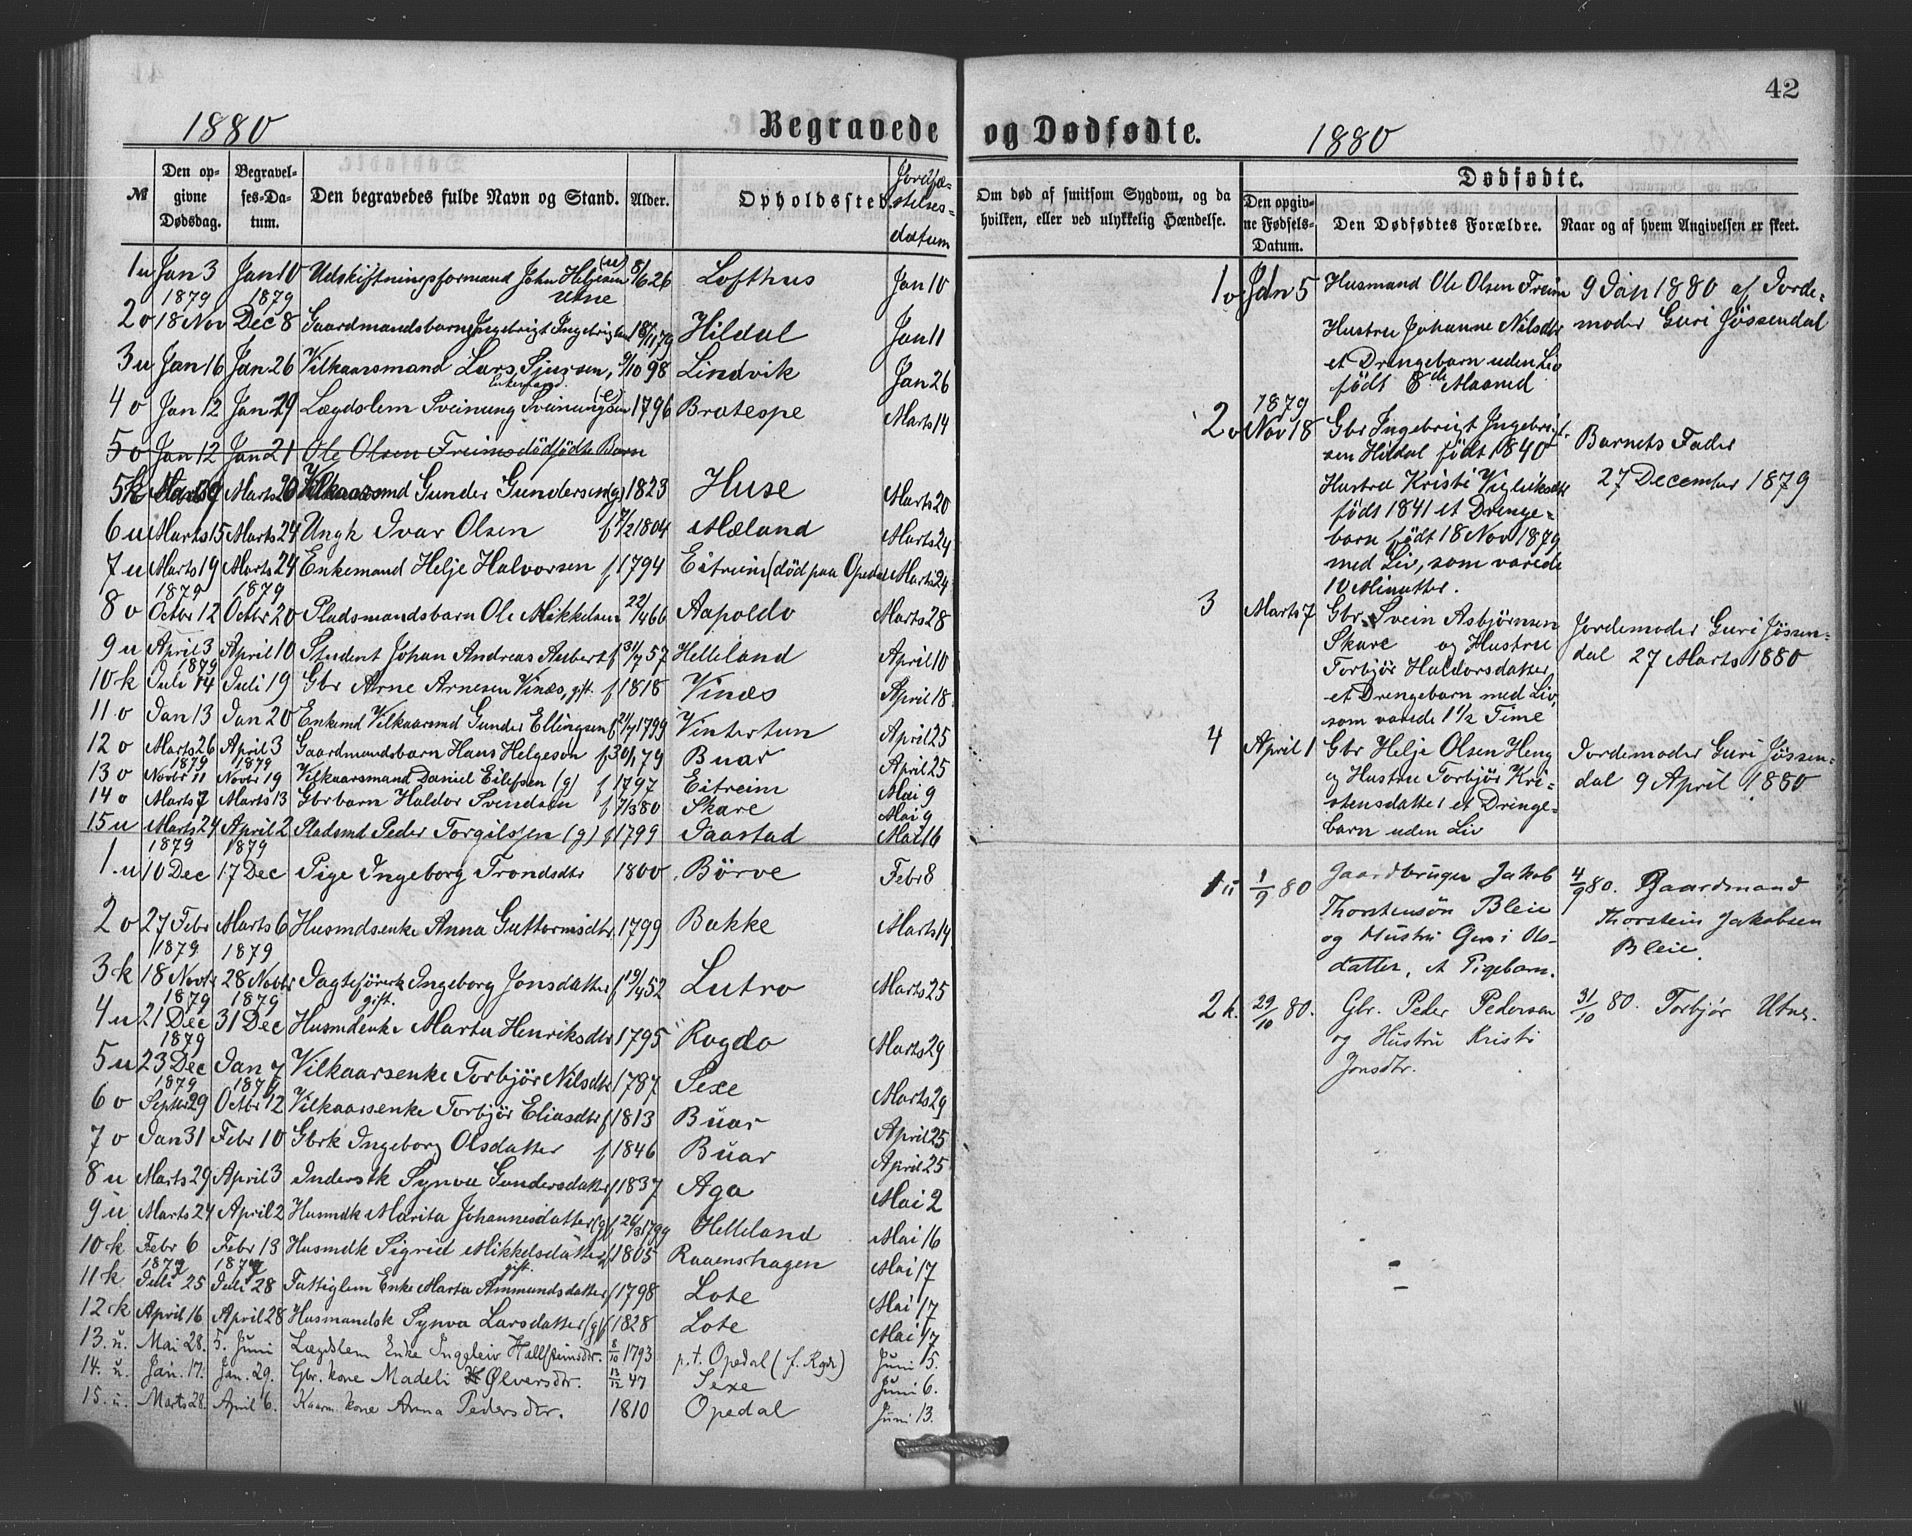 42
1880 Begravede og Dødfødte. 1880
№ Den opgivne Dødsdag. Begravelses-Datum. Den begravedes fulde Navn og Stand. Alder. Opholdssted. Jordfæstelsesdatum
Om død af smitsom Sygdom, og da hvilken, eller ved ulykkelig Hændelse.
Dødfødte.
Den opgivne Fødsels-Datum. Den Dødfødtes Forældre. Naar og af hvem Angivelsen er skeet.
1 u Jan 3 Jan 10 Udskiftningsformand John Helgesen (u) Utne 8/6 26 Lofthus Jan 10
2 o 1879 18 Nov 1879 Dec 8 Gaardmandsbarn Ingebrigt Ingebrigtsen 18/11 79 Hildal Jan 11
3 u Jan 16 Jan 26 Vilkaarsmand Lars Sjursen, Enkemand 9/10 98 Lindvik Jan 26
4 o Jan 12 Jan 29 Lægdslem Sveinung Sveinungsen (e) 1796 Bratespe Marts 14
5 o Jan 12 Jan 21 Ole Olsen Freims dödfödte Barn
5 k Marts 20 Vilkaarsmd Gunder Gundersen (g) 1823 Huse Marts 20
6 u Marts 15 Marts 24 Ungk Ivar Olsen f 1804 Mæland Marts 24
7 u Marts 19 Marts 24 Enkemand Helje Halvorsen f 1794 Eitreim (död paa Opedal Marts 24
8 o 1879 Octbr 12 1879 Octbr 20 Pladsmandsbarn Ole Mikkelsen 22/4 66 Aapoldo Marts 28
9 u April 3 April 10 Student Johan Andreas Aubert f 31/7 57 Helleland April 10
10 k 1879 Juli 14 Juli 19 Gbr Arne Arnesen Vinæs, gift. f 1818 Vinæs April 18
11 o Jan 13 Jan 20 Enkemd Vilkaarsmd Gunder Ellingsen f 21/7 1799 Vintertun April 25
12 o Marts 26 April 3 Gaardmandsbarn Hans Helgeson f 30/1 79 Buar April 25
13 o 1879 Novbr 11 1879 Novbr 19 Vilkaarsmand Daniel Eilefsen (g) f 1797 Eitreim Mai 9
14 o Marts 7 Marts 13 Gbrbarn Haldor Svendsen f 7/3 80 Skare Mai 9
15 u Marts 24 April 2 Pladsmd Peder Torgilssen (g) f 1799 Saastad Mai 16
1. u 1879 10 Dec 1879 17 Dec Pige Ingeborg Trondsdtr 1800 Börve Febr 8
2 o 27 Febr Marts 6 Husmdsenke Anna Guttormsdtr. 1799 Bakke Marts 14
3 k 1879 18 Novbr 1879 28 Novbr Jagteförerk Ingeborg Jonsdatter gift. f 19/4 52 Lutro Marts 25
4 u 1879 21 Dec 1879 31 Dec Husmdenke Marta Henriksdtr 1795 Ragdo Marts 29
5 u 1879 23 Dec Jan 7 Vilkaarsenke Torbjör Nilsdtr 1787 Sexe Marts 29
6 o 1879 Septbr 29 1879 Octbr 12 Vilkaarsenke Torbjör Eliasdtr f 1813 Buar April 25
7 o Jan 31 Febr 10 Gbrk Ingeborg Olsdatter f 1846 Buar April 25
8 u Marts 29 April 3 Inderstk Synva Gundersdatter f 1837 Aga Mai 2
9 u Marts 24 April 2 Husmdk Marita Johannesdatter (g) f 26/3 1799 Helleland Mai 16
10 k Febr 6 Febr 13 Husmdk Sigrid Mikkelsdatter gift. f 1805 Raaenshagen Mai 17
11 k 1877 Juli 25 1877 Juli 28 Fattiglem Enke Marta Ammundsdatter f 1798 Lote Mai 17
12 k April 16 April 28 Husmandsk Synva Larsdatter (g) f 1828 Lote Mai 17
13. u. Mai 28. 5. Juni Lægdslem Enke Ingeleiv Hallsteinsdtr. 8/10 1793 p.t. Opedal (f. Rgdr) Juni 5.
14. u. Jan. 17. Jan. 29. Gbr. kone Madeli Ølversdtr. 13/12 47 Sexe Juni 6.
15. u. Marts 28. April 6. Kaarm. kone Anna Pedersdtr. 1810 Opedal Juni 13.
1 o Jan 5 Husmand Ole Olsen Freim 9 Jan 1880 af Jorde-
Hustru Johanne Nilsdtr moder Guri Jössendal
et Drengebarn uden Liv
født 8de Maaned
2 o 1879 Nov 18 Gbr Ingebrigt Ingebrigt-
sen Hildal født 1840 Barnets Fader
Hustru Kristi Vigleiksdtr 27 December 1879
født 1841 et Drenge-
barn født 18 Nov 1879
med Liv, som varede
10 Minutter.
3 Marts 7 Gbr Svein Asbjørnsen Jordemoder Guri Jössen-
Skare og Hustru dal 27 Marts 1880
Torbjör Haldorsdatter,
et Drengebarn med Liv,
som varede 1 1/2 Time
4 April 1 Gbr Helje Olsen Heng Jordemoder Guri Jössen-
og Hustru Torbjör Kri- dal 9 April 1880
stensdatter et Drenge-
barn uden Liv
1 u 1/9 80 Gaardbruger Jakob 4/9 80. Gaardmand
Thorstensøn Bleie Thorstein Jakobsen
og Hustru Guri Ols- Bleie.
datter, et Pigebarn.
2 k. 29/10 80. Gbr. Peder Pedersen 31/10 80. Torbjør Utne.
og Hustru Kristi
Jonsdtr.